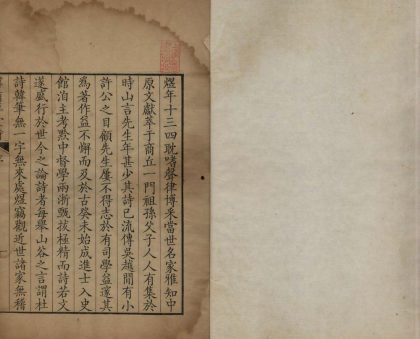 煜年十三四耽嗜聲律博采當世名家雅知中
原文獻萃于商丘一門祖孫父子人人有集於
時山言先生年甚少其詩已流傳吳越間有小
許公之目顧先生屢不得志於有司學益邃其
為著作益不懈而及於古癸未始成進士入史
館洎主考黔中督學兩浙甄拔極精而詩若文
遂盛行於世今之論詩者每舉山谷之言謂杜
詩韓筆無一字無來處煜竊觀近世諸家無稽